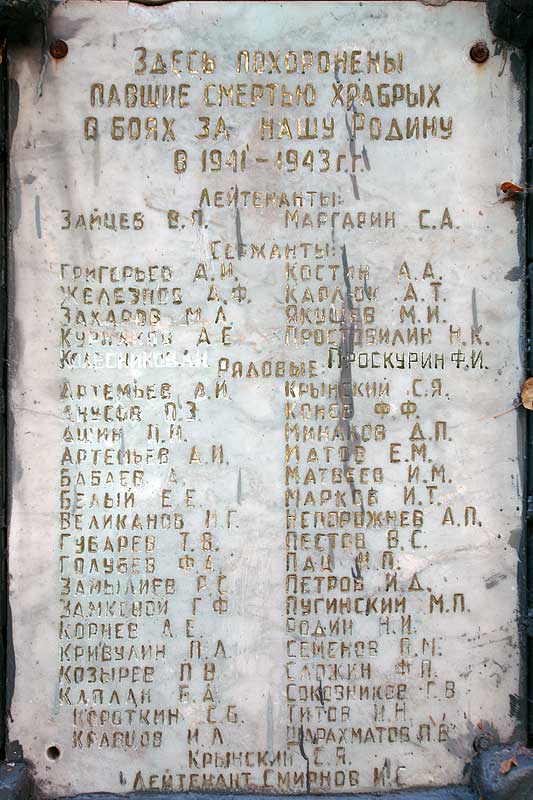 Здесь похоронены
павшие смертью храбрых
в боях за нашу Родину
в 1941-1943 г.г.
Лейтенанты:
Зайцев В.П. Маргарин С.А.
Сержанты:
Григорьев А.И. Костин А.А.
Железнов А.Ф. Карлов А.Т.
Захаров М.Л. Якушев М.И.
Курнаков А.Е. Простовилин Н.К.
Колесников А.Н. Проскурин Ф.И.
Рядовые:
Артемьев А.И. Крынский С.Я.
Анусов П.З. Конев Ф.Ф.
Ашин П.И. Минаков Д.П.
Артемьев А.И. Матов Е.М.
Бабаев А. Матвеев И.М.
Белый Е.Е. Марков И.Т.
Великанов И.Г. Непорожнев А.П.
Губарев Т.В. Пестов В.С.
Голубев Ф.А. Пац И.П.
Замылиев Г.С. Петров И.Д.
Замковой Г.Ф. Пугинский М.П.
Корнев А.Е. Родин Н.И.
Кривулин П.А. Семенов П.М.
Козырев П.В. Сложин Ф.П.
Каплан Б.А. Союзников Г.В.
Короткин С.Б. Титов И.Н.
Кравцов И.Л. Шарахматов П.В.
Крынский С.Я.
Лейтенант Смирнов И.С.